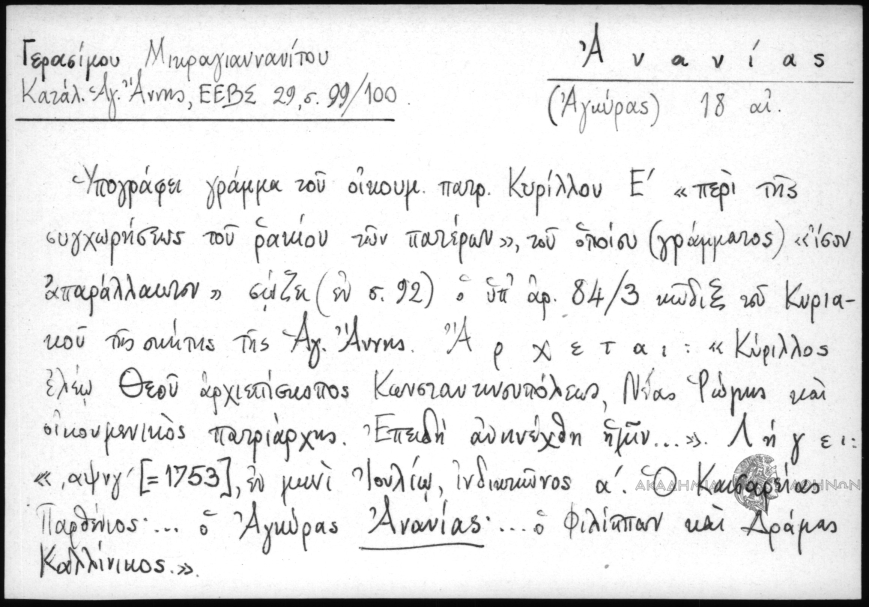 Γερασίμου Μικραγιαννανίτου
Κατάλ. Ἁγ. Ἄννης, ΕΕΒΣ 29, σ. 99/100.
Ἀνανίας
(Ἀγκύρας) 18 αἰ.
Ὑπογράφει γράμμα τοῦ οἰκουμ. πατρ. Κυρίλλου Ε´ «περὶ τῆς
συγχωρήσεως τοῦ ῥακίου τῶν πατέρων», τοῦ ὁποίου (γράμματος) «ἴσον
ἀπαράλλακτον» σῴζει (ἐν σ. 92) ὁ ὑπ' ἀρ. 84/3 κῶδιξ τοῦ Κυρια-
κοῦ τῆς σκήτης τῆς Ἁγ. Ἄννης. Ἄρχεται: «Κύριλλος
ἐλέῳ Θεοῦ ἀρχιεπίσκοπος Κωνσταντινουπόλεως, Νέας Ῥώμης καὶ
οἰκουμενικὸς πατριάρχης. Ἐπειδὴ ἀνηνέχθη ἡμῖν...». Λήγει:
«͵αψνγ´ [=1753], ἐν μηνὶ Ἰουλίῳ, ἰνδικτιῶνος α´. Ὁ Καισαρείας
Παρθένιος· ... ὁ Ἀγκύρας Ἀνανίας· ... ὁ Φιλίππων καὶ Δράμας
Καλλίνικος.».
ΑΚΑΔΗΜΙΑ ΑΘΗΝΩΝ